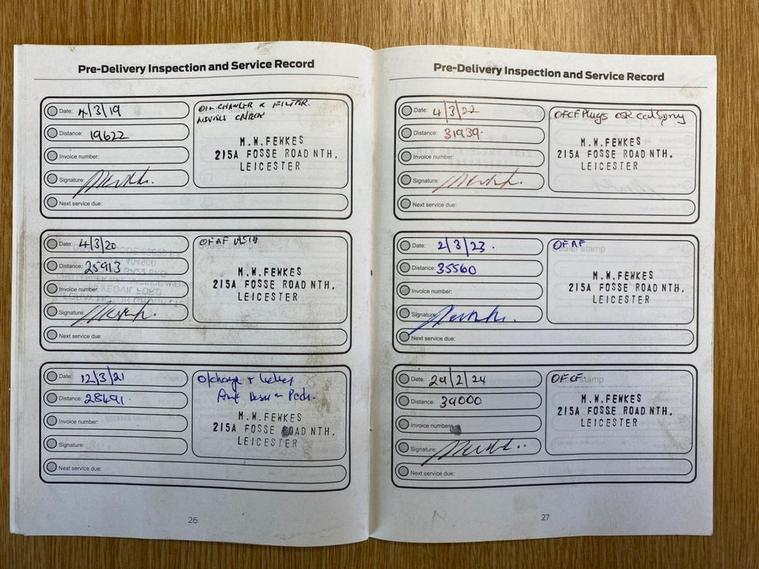 Pre-Delivery Inspection and Service Record
Date: 4/3/19
Distance: 19622
Invoice number:
Signature:
Next service due:
OIL CHANGE & FILTER.
LEVELS CHECK
M.W.FEWKES
215A FOSSE ROAD NTH.
LEICESTER
Date: 4/3/20
Distance: 25913
Invoice number:
Signature:
Next service due:
OF AF
M.W.FEWKES
215A FOSSE ROAD NTH.
LEICESTER
Date: 12/3/21
Distance: 28491.
Invoice number:
Signature:
Next service due:
O/change +
M.W.FEWKES
215A FOSSE ROAD NTH.
LEICESTER
26
Pre-Delivery Inspection and Service Record
Date: 4/3/22
Distance: 31939.
Invoice number:
Signature:
Next service due:
OFCF Plugs OSR Coil Spring
M.W.FEWKES
215A FOSSE ROAD NTH.
LEICESTER
Date: 2/3/23.
Distance: 35560
Invoice number:
Signature:
Next service due:
OF AF
stamp
M.W.FEWKES
215A FOSSE ROAD NTH.
LEICESTER
Date: 29/2/24
Distance: 39000
Invoice number:
Signature:
Next service due:
OFCF
stamp
M.W.FEWKES
215A FOSSE ROAD NTH.
LEICESTER
27